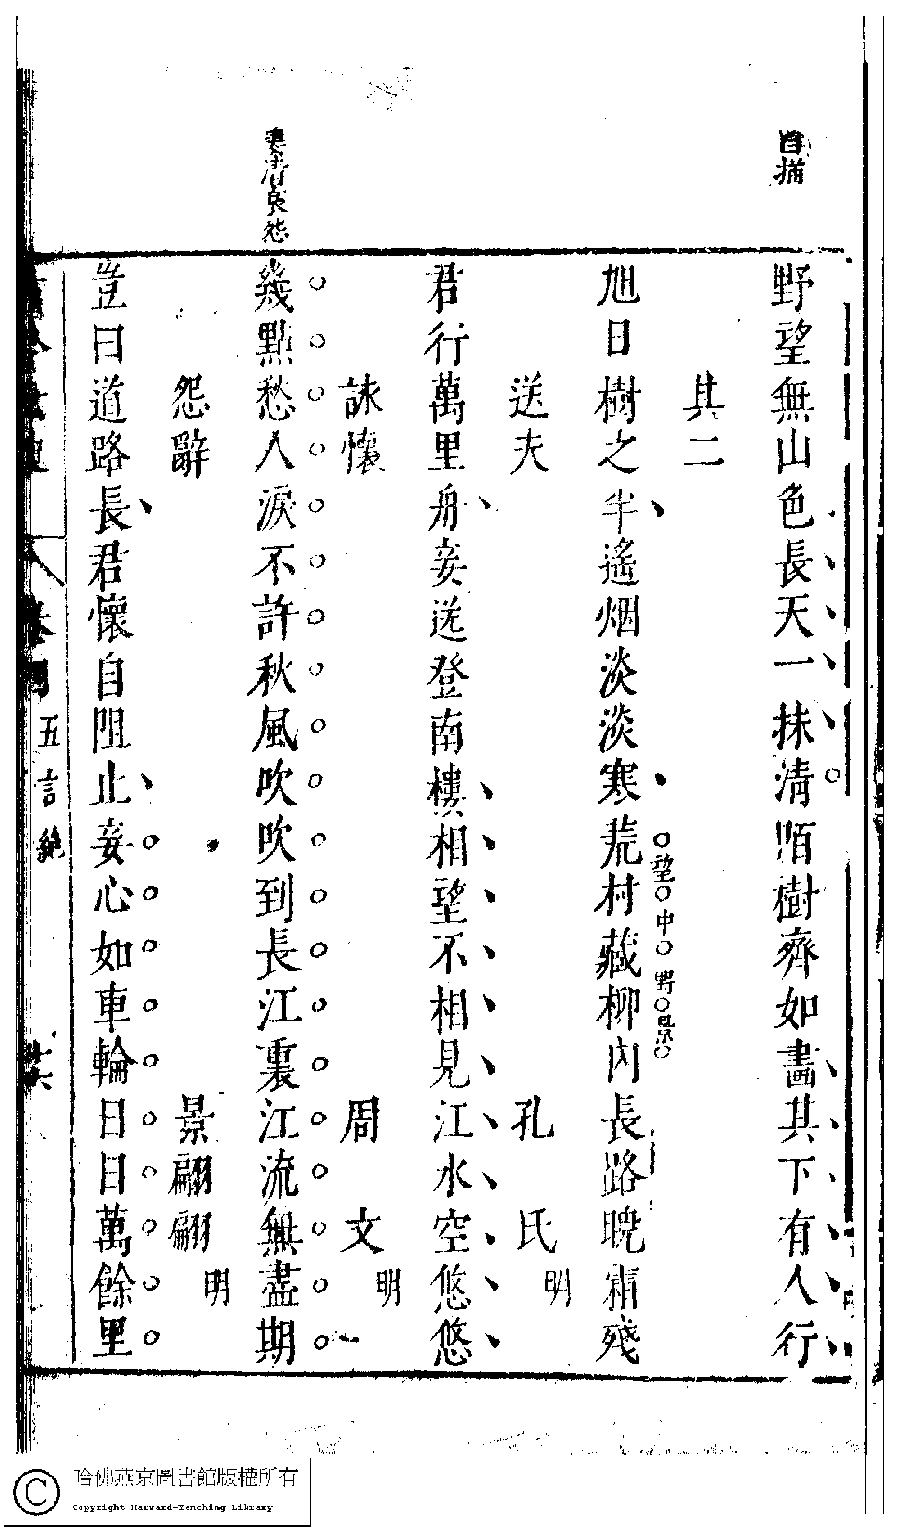 自描
野望無山色長天一抹清陌樹齊如畵其下有人行
其二
旭日樹之半遙烟淡淡寒荒村藏柳內長路曉霜殘
望中野景
送夫 孔氏 明
君行萬里舟妾送登南樓相望不相見江水空悠悠
詠懷 周文 明
淸哀怨
幾點愁人淚不許秋風吹吹到長江裏江流無盡期
怨辭 景翩翩 明
豈曰道路長君懷自阻止妾心如車輪日日萬餘里
卷四 五言絶
哈佛燕京圖書館版權所有
Copyright Harvard-Yenching Library